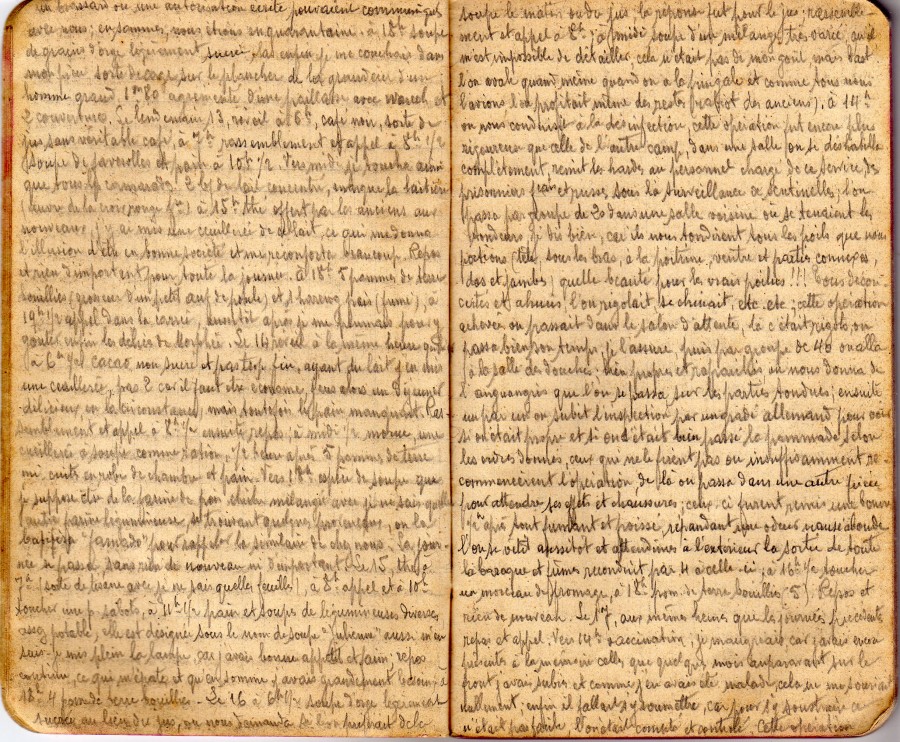 un brassard ou une autorisation écrite pouvaient communiquer
avec nous; en sommes, nous étions en quarantaine. à 18h soupe
de grains d'orge légèrement sucré, las enfin je me couchais dans
mon fière sorte de cage, sur le plancher de la grandeur d'un
homme grand, 1m80 agrémenté d'une paillasse avec warech et
2 couvertures. Le lendemain 13, réveil à 6h, café noir, sorte de
jus sans véritable café, à 7h rassemblement et appel à 8h 1/2
soupe de faverolles et pain à 10h 1/2. Vers midi je touche ainsi
que tous mes camarades 2 b. de lait concentré, marque la laitière
(œuvre de la croix rouge) à 15h thé offert par les anciens aux
nouveaux, j'y ai mis une cuillerée de lait, ce qui me donna
l'illusion d'être en bonne société et me réconforta beaucoup. Repos
et rien d'important pour toute la journée. à 18h 5 pommes de terre
bouillies (grosseur d'un petit œuf de poule), et 1 hareng frais (fumé), à
19h 1/2 appel dans la carrée, aussitôt après je me
goûter enfin les délices de Morphée. Le 14 réveil à la même heure
à 6h cacao non sucré et pas très fin, ayant du lait j'en mis
une cuillerée, pas 2 car il faut être économe, fera alors un déjeuner
délicieux en la circonstance, mais toutefois le pain manquait. Ras
semblement et appel à 8h 1/2 ensuite repos; à midi 1/2 morue, une
cuillerée à soupe comme ration, 1/2 heure après 5 pommes de terre
mi cuites en robe de chambre et pain. Vers 18h espèce de soupe que
je suppose être de la farine de pois chiche mélangée avec je ne sais quelle
autre farine légumineuse, se trouvant quelques provençaux, on la
baptisa "farinado" pour rappeler la similaire de chez nous. La jour-
née se passa sans rien de nouveau ni d'important. Le 15, thé à
7h (sorte de tisane avec je ne sais quelles feuilles), à 8h appel et à 10h
toucher une p. sabots, à 11h 1/2 pain et soupes de légumineuse diverses
assez potable, elle est désignée sous le nom de soupe "julienne" aussi m'en
suis-je mis plein la lampe, car j'avais bonne appétit et faim; repos
ensuite, ce qui m'épate et qu'en somme j'avais grandement besoin, à
18h 4 pom de terre bouillies. Le 16 à 6h 1/2 soupe d'orge légèrement
sucrée au lieu du jus, on nous demanda si l'on préférait de la
soupe le matin ou du jus, la réponse fut pour le jus; rassemble
ment et appel à 8h. à midi soupe d'un mélange très varié, qu'il
m'est impossible de détailler, cela n'était pas de mon goût, mais bast
l'on avale quand même quand on a la fringale et comme tous nous
l'avions l'on profitait même de reste (rabiot des anciens), à 14h
on nous conduisit à la désinfection, cette opération fut encore plus
rigoureuse que celle de l'autre camp, dans une salle on se déshabilla
complètement, remit les hardes au personnel chargé de ce service, des
prisonniers français et russes, sous la surveillance de sentinelles; l'on
passa par groupe de 20 dans une salle voisine où se tenaient les
tondeurs je dis bien, car ils nous tondirent tous les poils que nous
portions (tête, sous les bras, à la poitrine, ventre et parties convexes,
dos et jambes) quelle beauté pour les vrais poilus!!! Tous décon-
certés et ahuris; l'on rigolait, se chinait, etc. etc; cette opération
achevée on passait dans le salon d'attente, là c'était rigolo, on
passa bien son temps, je l'assure, puis par groupe de 40 on alla
à la salle des douches: bien propres et rafraîchis on nous donna de
l'onguent gris que l'on se passa sur les parties tondues; ensuite
un par un on subit l'inspection par un gradé allemand pour voir
si on était propre et si on s'était bien passé la pommade selon
les ordres donnés, ceux qui ne le firent pas ou insuffisamment re
commencèrent l'opération, de là on passa dans une autre pièce
pour attendre ses effets et chaussures; ceux-ci furent remis une bonne
1/2h après tout fumant et poissé, répandant une odeur nauséabonde
l'on se vêtit aussitôt et attendîmes à l'extérieur la sortie de toute
la baraque et fûmes reconduit par 4 à celle-ci, à 16h 1/2 toucher
un morceau de fromage, à 18h pom. de terre bouillies (5). Repos et
rien de nouveau. Le 17, aux mêmes heures que les journées précédentes
repos et appel. Vers 14h vaccination; je maugréais, car j'avais encore
présente à la mémoire celles que quelques mois auparavant sur le
front j'avais subies et comme j'en avais été malade, cela ne me souriait
nullement; enfin il fallait s'y soumettre, car pour s'y soustraire ce
n'était pas facile l'on était compté et contrôlé. Cette opération